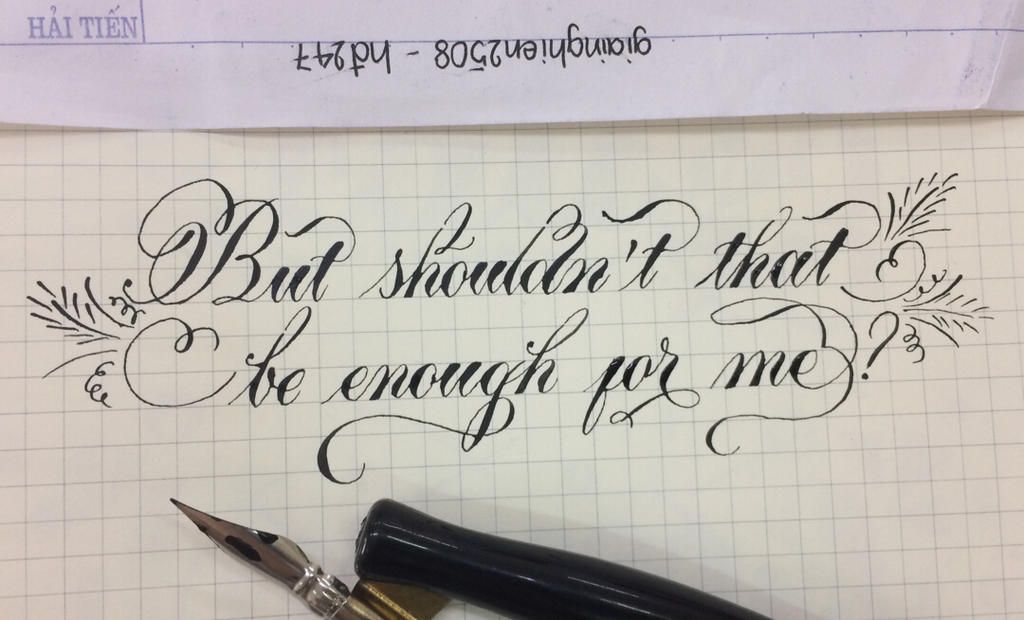 HẢI TIẾN
giainghien2508 - hđ247
But shouldn't that
be enough for me?